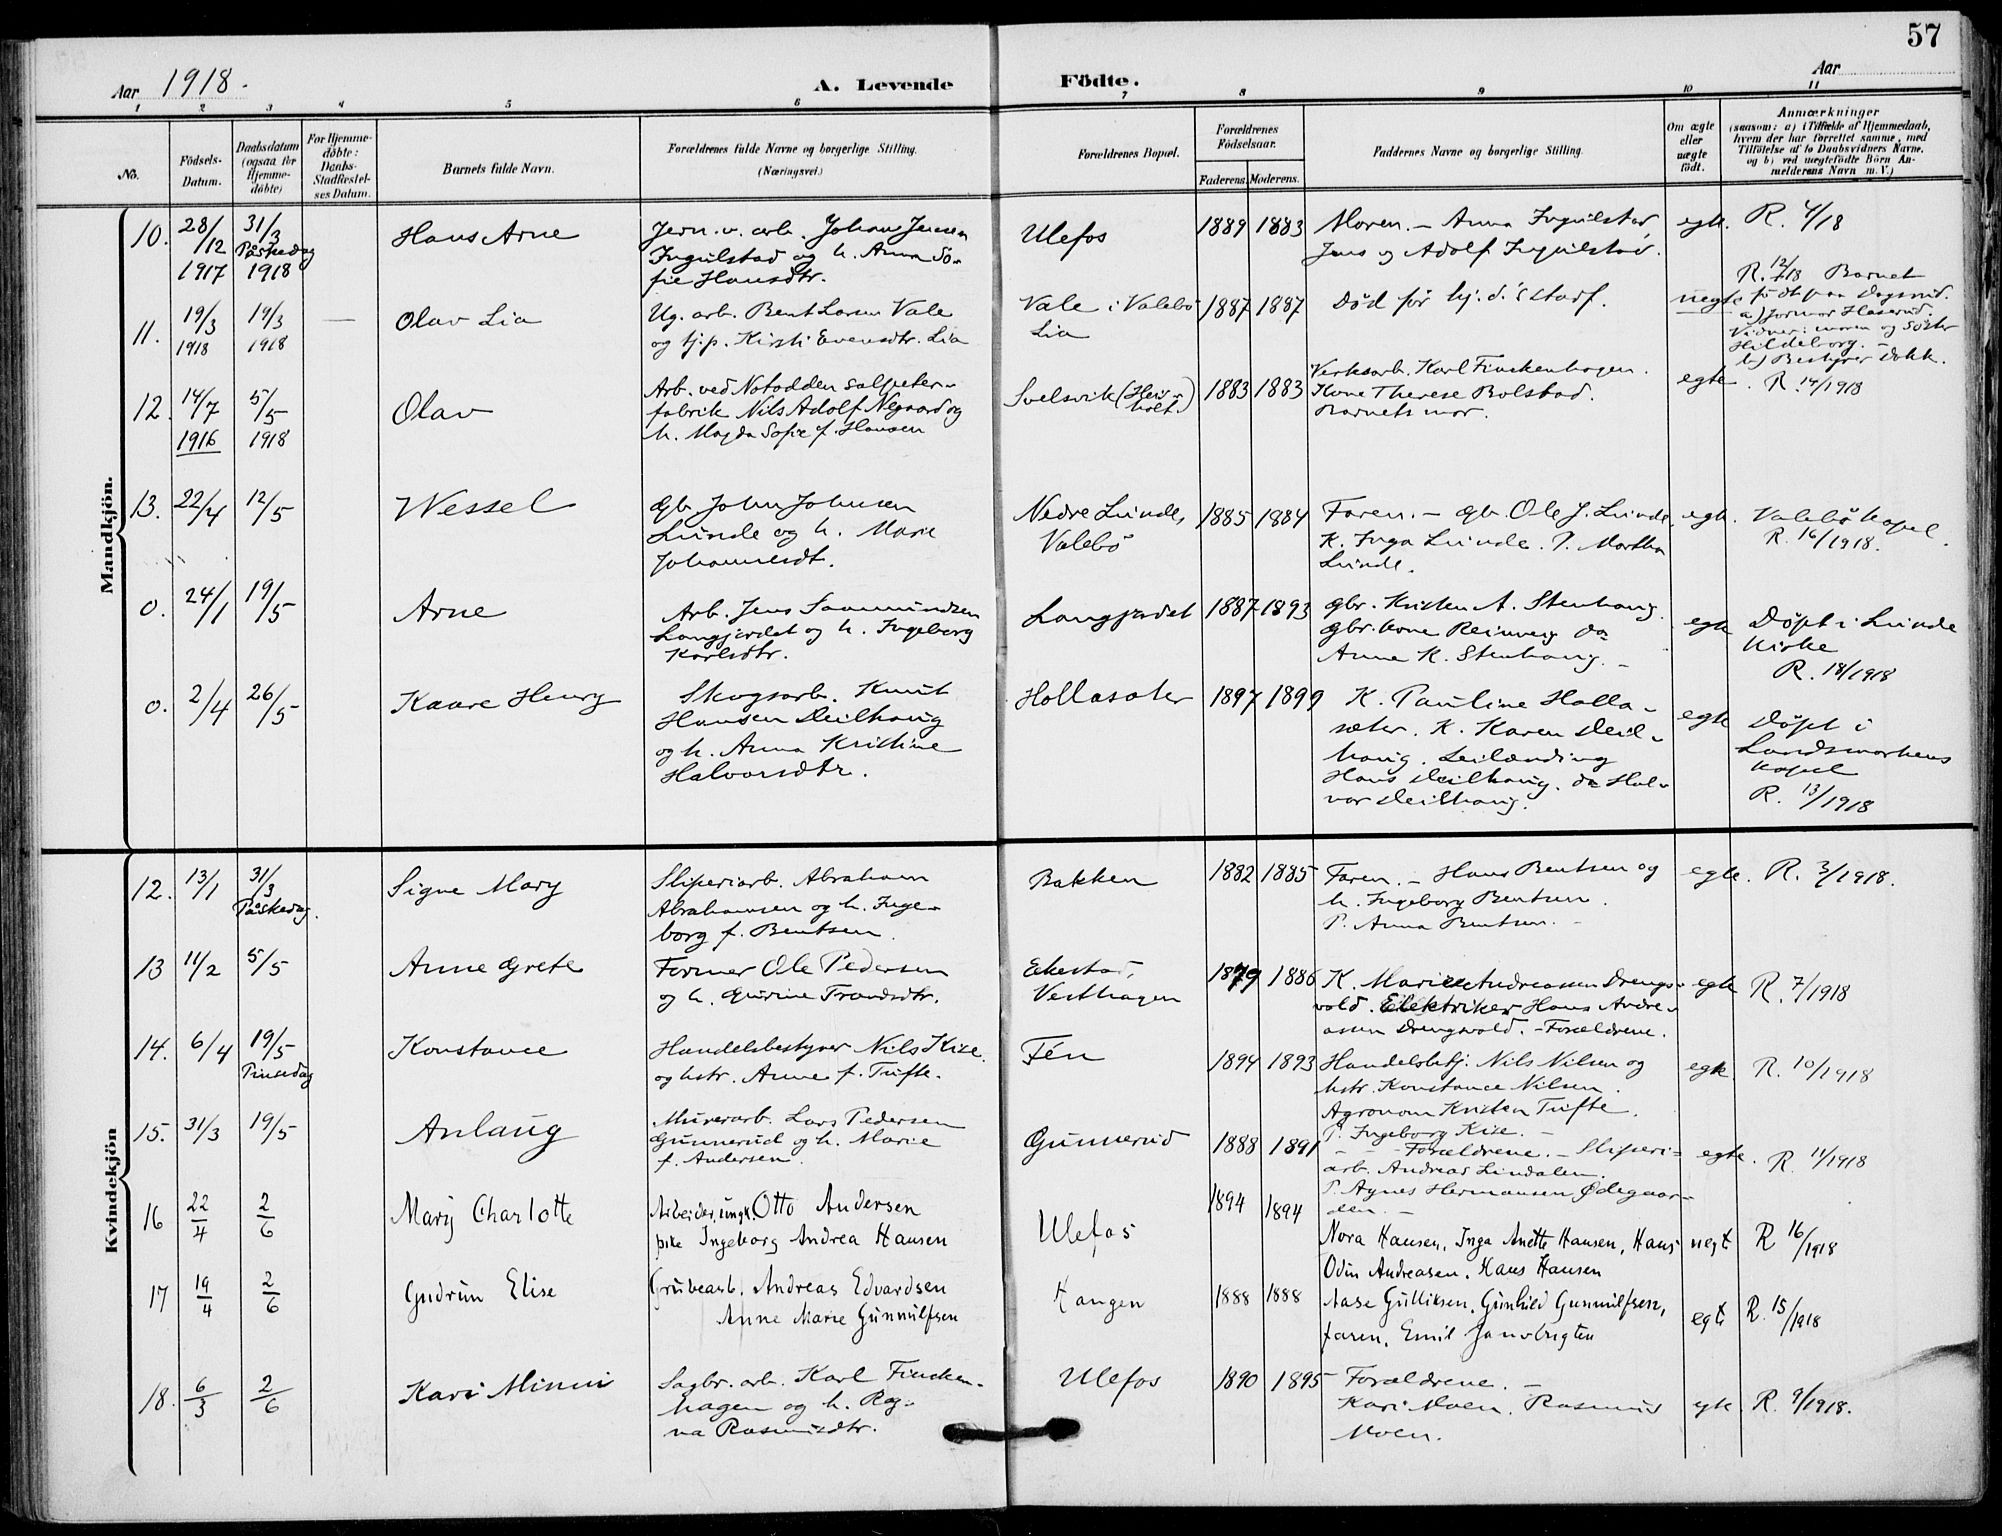 57
Aar 1918.
A. Levende
Födte.
Aar
1 2 3 4 5 6 7 8 9 10 11
No.
Födsels-
Datum.
Daabsdatum
(ogsaa for
Hjemme-
döbte)
For Hjemme-
döbte:
Daabs-
Stadfæstel-
ses Datum.
Barnets fulde Navn.
Forældrenes fulde Navne og borgerlige Stilling.
(Næringsvei.)
Forældrenes Bopæl.
Forældrenes
Födselsaar.
Faderens. Moderens.
Faddernes Navne og borgerlige Stilling.
Om ægte
eller
uægte
födt.
Anmærkninger
(saasom: a) i Tilfælde af Hjemmedaab,
hvem der har forrettet samme, med
Tilföielse af to Daabsvidners Navne.
og b) ved uægtefödte Börn An-
melderens Navn m. V.)
Mandkjön.
10.
28/12
1917
31/3
Påskedag
1918
Hans Arne
Jern.v. arb. Johan Jensen
Ingulstad og h. Anna So-
fie Hansdtr.
Ulefos
1889 1883
Moren. – Anna Ingulstad,
Jens og Adolf Ingulstad.
egte.
R. 4/18
11.
19/3
1918
19/3
1918
—
Olav Lia
Ug. arb. Bent Larsen Vale
og tj.p. Kirsti Evensdtr. Lia
Vale i Valebö
Lia
1887 1887
Död för hj.d.'s stadf.
uegte
R. 12/18 Barnet
födt paa Dagsrud.
Vidner: moren og Söster
Hildeborg. –
b) Bestyrer Dokk.
12.
14/7
1916
5/5
1918
Olav
Arb. ved Notodden salpeter-
fabrik Nils Adolf Negaard og
h. Magda Sofie f. Hansen
Svelsvik (Hei-
holt.)
1883 1883
Verksarb. Karl Finckenhagen.
Kone Therese Bolstad.
Barnets mor.
egte.
R. 14/1918
13.
22/4
12/5
Wessel
Gb. John Johnsen
Lunde og h. Marie
Johannesdt.
Nedre Lunde,
Valebö
1885 1884
Faren. – gb. Ole J. Lunde.
K. Inga Lunde. P. Martha
Lunde.
egte.
Valebö kapel.
R. 16/1918.
0.
24/1
19/5
Arne
Arb. Jens Sammundsen
Langjordet og h. Ingeborg
Karlsdtr.
Langjordet
1887 1893
gbr. Kristen A. Stenhaug.
Anne K. Stenhaug. –
egte
Döpt i Lunde
Kirke
R. 18/1918
0.
2/4
26/5
Kaare Henry
Skogsarb. Knut
Hansen Deilhaug
og h. Anna Kristine
Halvorsdtr.
Hollasæter
1897 1899
K. Pauline Holla-
sæter. K. Karen Deil-
haug. Leilænding
Hans Deilhaug. do Hal-
vor Deilhaug.
egte
Döpt i
Landsmarkens
kapel
R. 13/1918
Kvindekjön
12.
13/1
31/3
Påskedag.
Signe Mary
Sliperiarb. Abraham
Abrahamsen og h. Inge-
borg f. Bentsen.
Bakken
1882 1885
Faren. – Hans Bentsen og
h. Ingeborg Bentsen.
P. Anna Bentsen. –
egte.
R. 3/1918.
13
11/2
5/5
Anne Grete
Former Ole Pedersen
og h. Gurine Trondsdtr.
Ekestad,
Vesthagen
1879 1886
K. Marie Andreassen Drengs-
vold. Elektriker Hans Andre-
assen Drengsvold. – Forældrene.
egte
R. 7/1918
14.
6/4
19/5
Pinsedag
Konstance
Handelsbestyrer Nils Kise.
og hstr. Anne f. Tufte.
Fén
1894 1893
Handelsbetj. Nils Nilsen og
hstr. Konstance Nilsen.
Agronom Kristen Tufte.
P. Ingeborg Kise. –
egte.
R. 10/1918
15.
31/3
19/5
Anlaug
Murerarb. Lars Pedersen
Gunnerud og h. Marie
f. Andersen.
Gunnerud
1888 1891
– – – Forældrene. – Sliperi-
arb. Andreas Lindalen.
P. Agnes Hermansen Ødegaar-
den. –
egte.
R. 11/1918
16
22/4
2/6
Mary Charlotte
Arbeider, ungk. Otto Andersen
pike Ingeborg Andrea Hansen
Ulefos
1894 1894
Nora Hansen, Inga Anette Hansen, Hans
Odin Andreasen, Hans Hansen
uegt
R 16/1918
17
19/4
2/6
Gudrun Elise
Grubearb. Andreas Edvardsen
Anne Marie Gunnulfsen
Kangen
1888 1888
Aase Gulliksen, Gunhild Gunnulfsen,
faren, Emil
egte
R. 15/1918
18.
6/3
2/6
Kari Minni
Sagbr. arb. Karl Fincken-
hagen og h. Rag-
na Rasmusdtr.
Ulefos
1890 1895
Forældrene. –
Kari Moen. Rasmus
Moen.
egte
R. 9/1918.